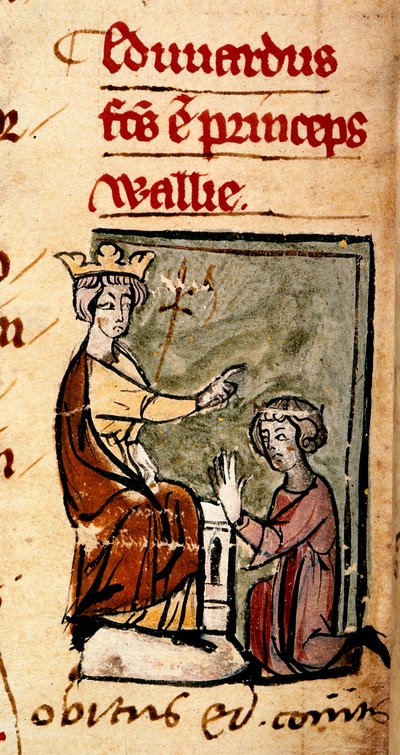 Edwardus
fc̄s ē princeps
wallie.
obitus ed. comitis